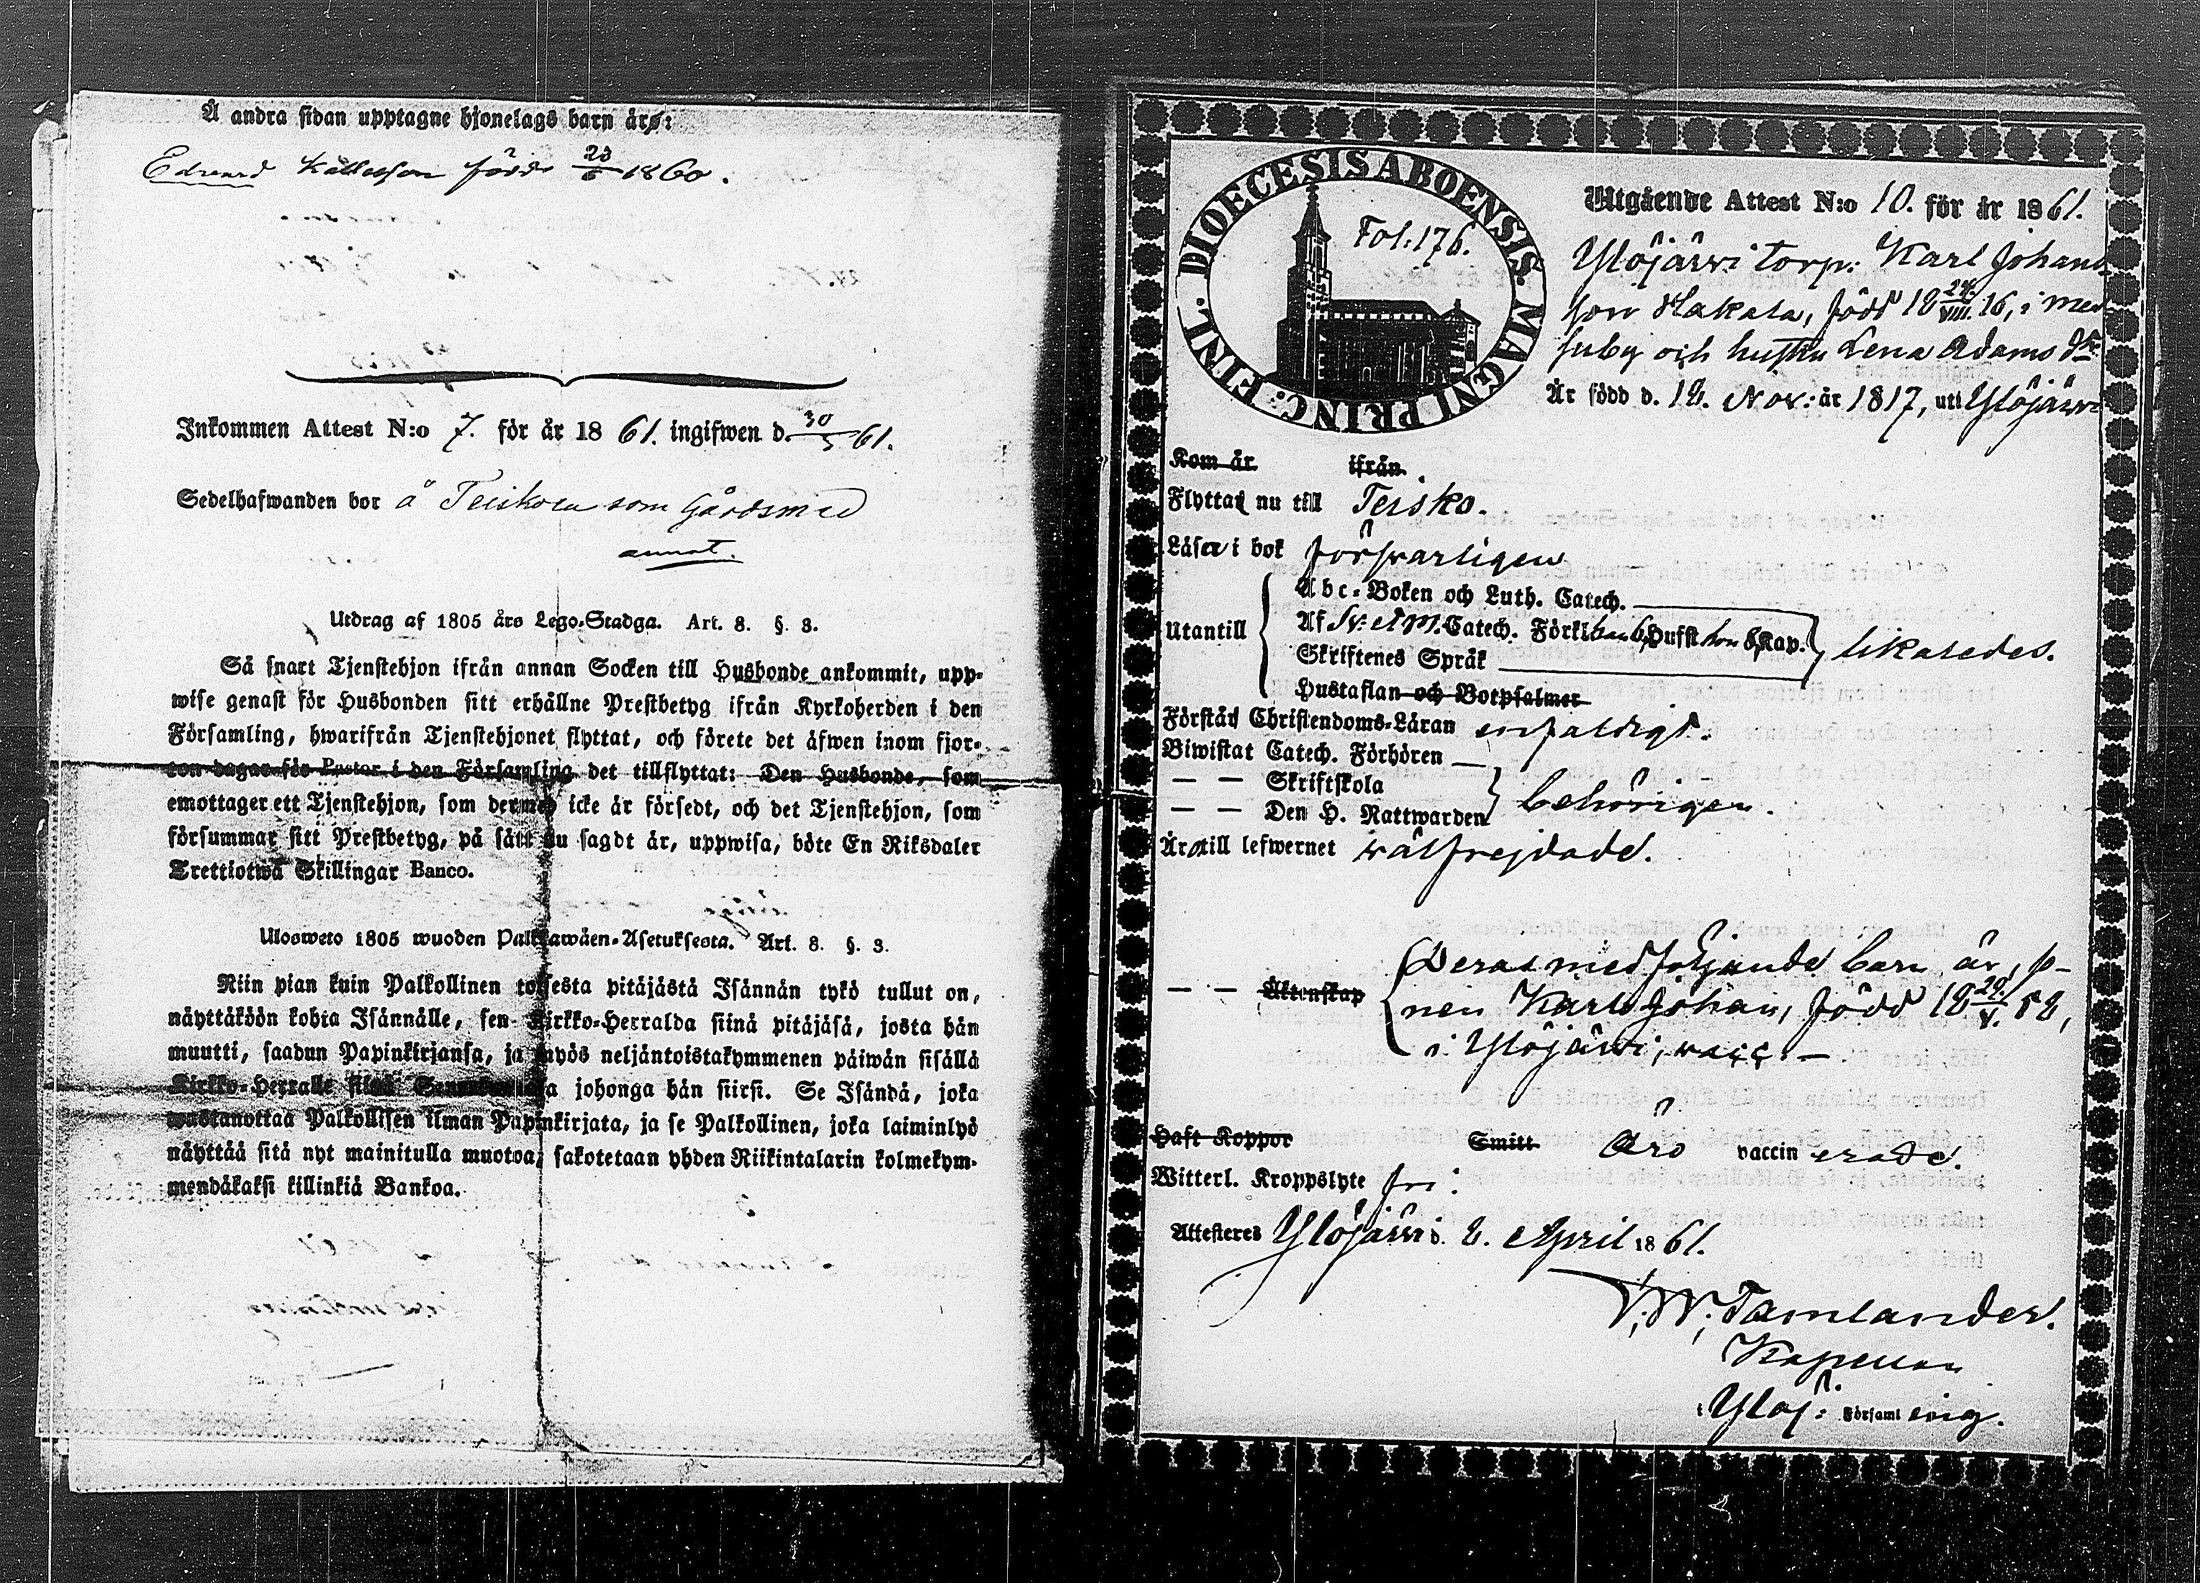 Å andra sidan upptagne hjonelags barn är:
Edvard född 1860.
Inkommen Attest N:o 7. för år 1861. ingifwen d. 30/5 61.
Sedelhafwanden bor å Teiskola som Gårdsmed
annat.
Utdrag af 1805 års Lego-Stadga. Art. 8. §. 3.
Så snart Tjenstehjon ifrån annan Socken till Husbonde ankommit, upp-
wise genast för Husbonden sitt erhållne Prestbetyg ifrån Kyrkoherden i den
Församling, hwarifrån Tjenstehjonet flyttat, och förete det äfwen inom fjor-
ton dagar för Pastor i den Församling det tillflyttat: Den Husbonde, som
emottager ett Tjenstehjon, som dermed icke är försedt, och det Tjenstehjon, som
försummar sitt Prestbetyg, på sätt nu sagdt är, uppwisa, böte En Riksdaler
Trettiotwå Skillingar Banco.
Ulosweto 1805 wuoden Palkkawäen-Asetuksesta. Art. 8. §. 3.
Niin pian kuin Palkollinen toisesta pitäjästä Isännän tykö tullut on,
näyttäköön kohta Isännälle, sen Kirkko-Herralda siinä pitäjäsä, josta hän
muutti, saadun Papinkirjansa, ja myös neljäntoistakymmenen päiwän sisällä
Kirkko-Herralle siinä Seurakunnasa johonga hän siirsi. Se Isändä, joka
wastanottaa Palkollisen ilman Papinkirjata, ja se Palkollinen, joka laiminlyö
näyttää sitä nyt mainitulla muotoa, sakotetaan yhden Riikintalarin kolmekym-
mendäkaksi killinkiä Bankoa.
DIOECESIS ABOENSIS. MAGNI PRINC: FINL.
Fol: 176.
Utgående Attest N:o 10. för år 1861.
Ylöjärwi torp: Karl Johans
son Hakala, född 18 24/VIII. 16, i Med
suby och hustru Lena Adamsdr
Är född d. 12. Nov: år 1817, uti Ylöjärwi
Kom år ifrån
Flyttar nu till Teisko.
Läser i bok förswarligen
Utantill
Abc-Boken och Luth. Catech.
Af Sv: A M. Catech. Förkl. han 6, Hufst. hon 8 Kap.
Skriftenes Språk
likaledes.
Hustaflan och Botpsalmer
Förstår Christendoms-Läran enfaldigt.
Biwistat Catech. Förhören
— — Skriftskola
— — Den H. Nattwarden
behörigen.
Är till lefwernet wälfrejdade.
— — Äktenskap
Deras medföljande barn är, so-
nen Karl Johan, född 18 29/V. 52,
i Ylöjärwi, vacc: —
Haft Koppor Smitt Äro vaccinerade.
Witterl. Kroppslyte fri:
Attesteres Ylöjärwi d. 2. April 1861.
V. W. Tamlander.
Kapellan
i Ylöj: Församling.